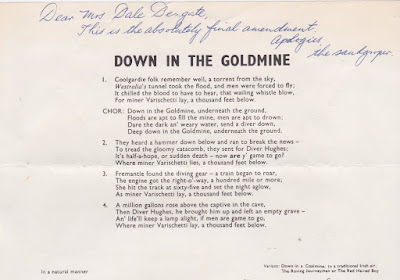 Dear Mrs Dale Dengate,
This is the absolutely final amendment.
Apologies
the sandgroper.
DOWN IN THE GOLDMINE
1. Coolgardie folk remember well, a torrent from the sky,
Westralia's tunnel took the flood, and men were forced to fly;
It chilled the blood to have to hear, that wailing whistle blow,
For miner Varischetti lay, a thousand feet below.
CHOR: Down in the Goldmine, underneath the ground,
Floods are apt to fill the mine, men are apt to drown;
Dare the dark an' weary water, send a diver down,
Deep down in the Goldmine, underneath the ground.
2. They heard a hammer down below and ran to break the news –
To tread the gloomy catacomb, they sent for Diver Hughes;
It's half-a-hope, or sudden death – now are y' game to go?
Where miner Varischetti lies, a thousand feet below.
3. Fremantle found the diving gear – a train began to roar,
The engine got the right-o'-way, a hundred mile or more;
She hit the track at sixty-five and set the night aglow,
As miner Varischetti lay, a thousand feet below.
4. A million gallons rose above the captive in the cave,
Then Diver Hughes, he brought him up and left an empty grave –
An' life'll keep a lamp alight, if men are game to go,
Where miner Varischetti lay, a thousand feet below.
In a natural manner
Variant: Down in a Coalmine, to a traditional Irish air,
The Roving Journeyman or The Red Haired Boy